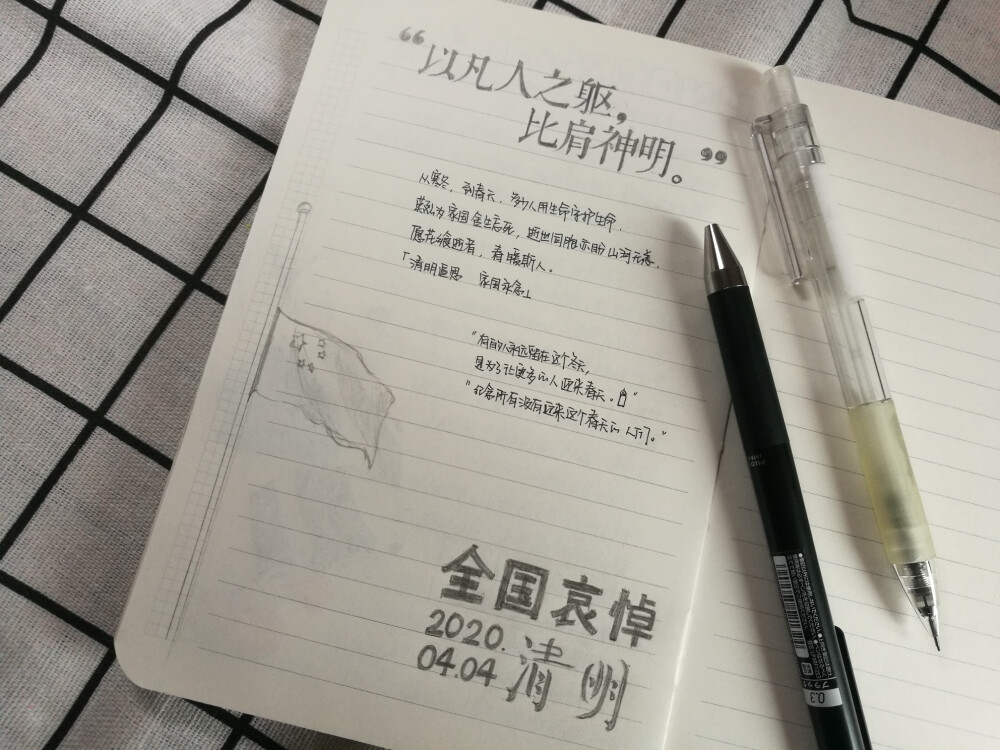 “以凡人之躯，
比肩神明。”
从寒冬，到春天，多少人用生命守护生命，
英烈为家国舍生忘死，逝世同胞亦盼山河无恙，
愿花飨逝者，春暖斯人。
「清明追思 家国永念」
"有的人永远留在这个冬天，
是为了让更多的人迎来春天。"
"纪念所有没有迎来这个春天的人们。"
全国哀悼
2020.
04.04 清明
0.3